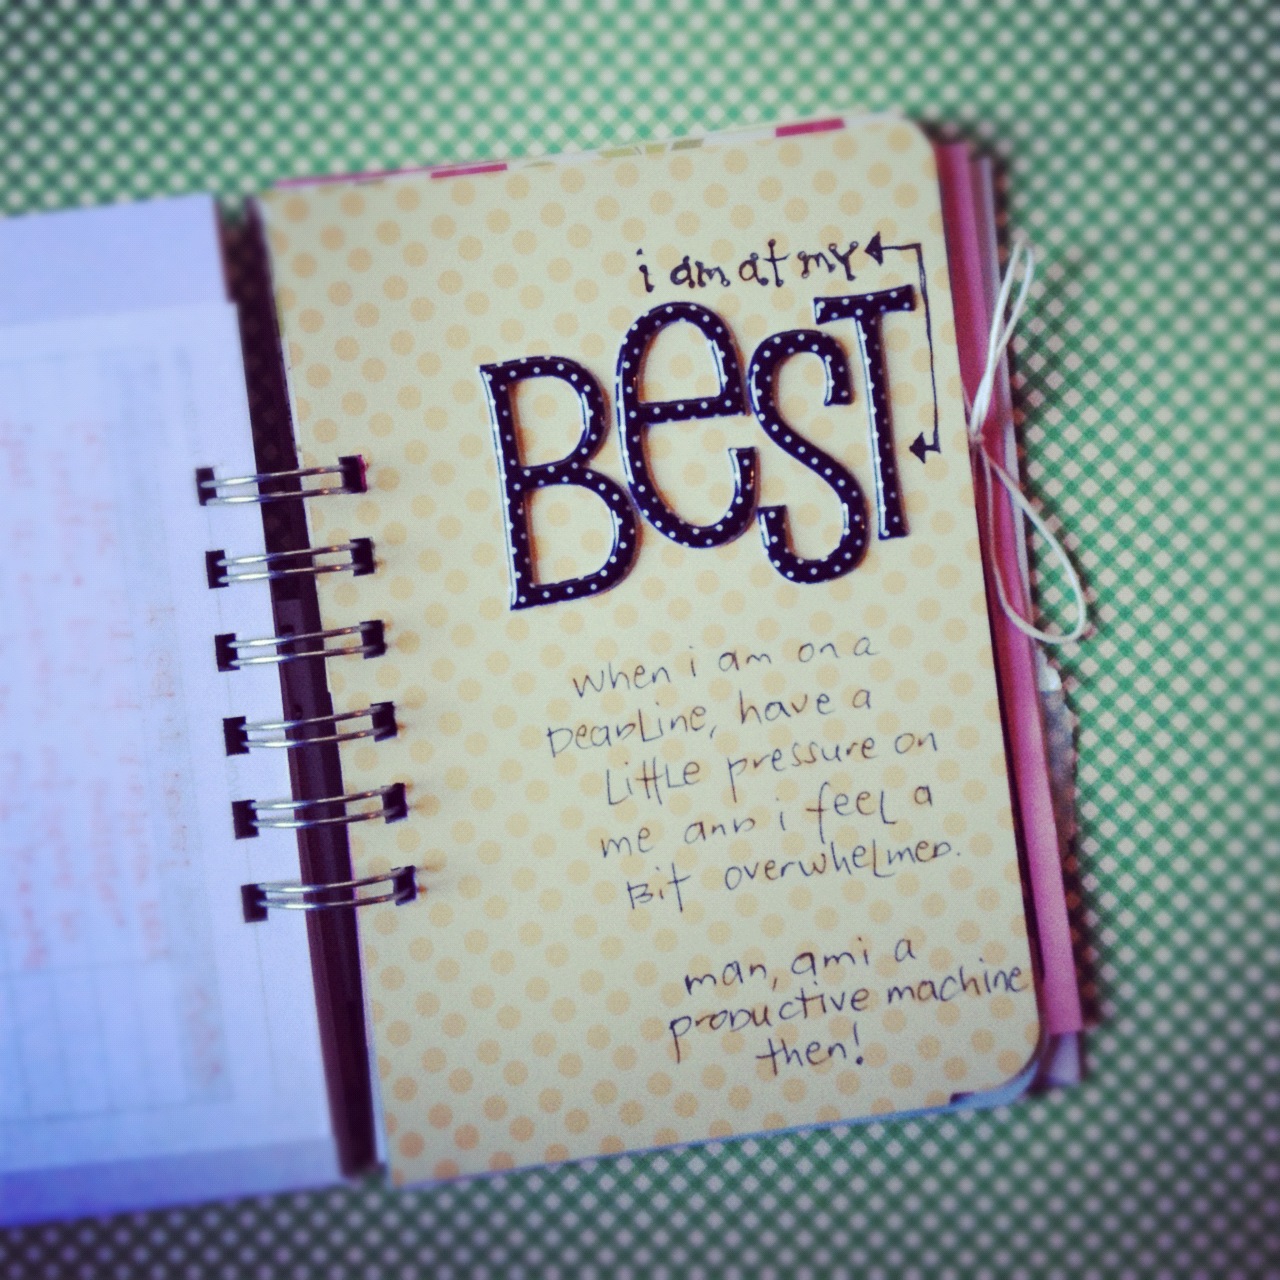 i am at my
BeST
when i am on a
DeaDLine, have a
LittLe pressure on
me anD i feeL a
Bit overwheLmeD.
man, am i a
proDuctive machine
then!